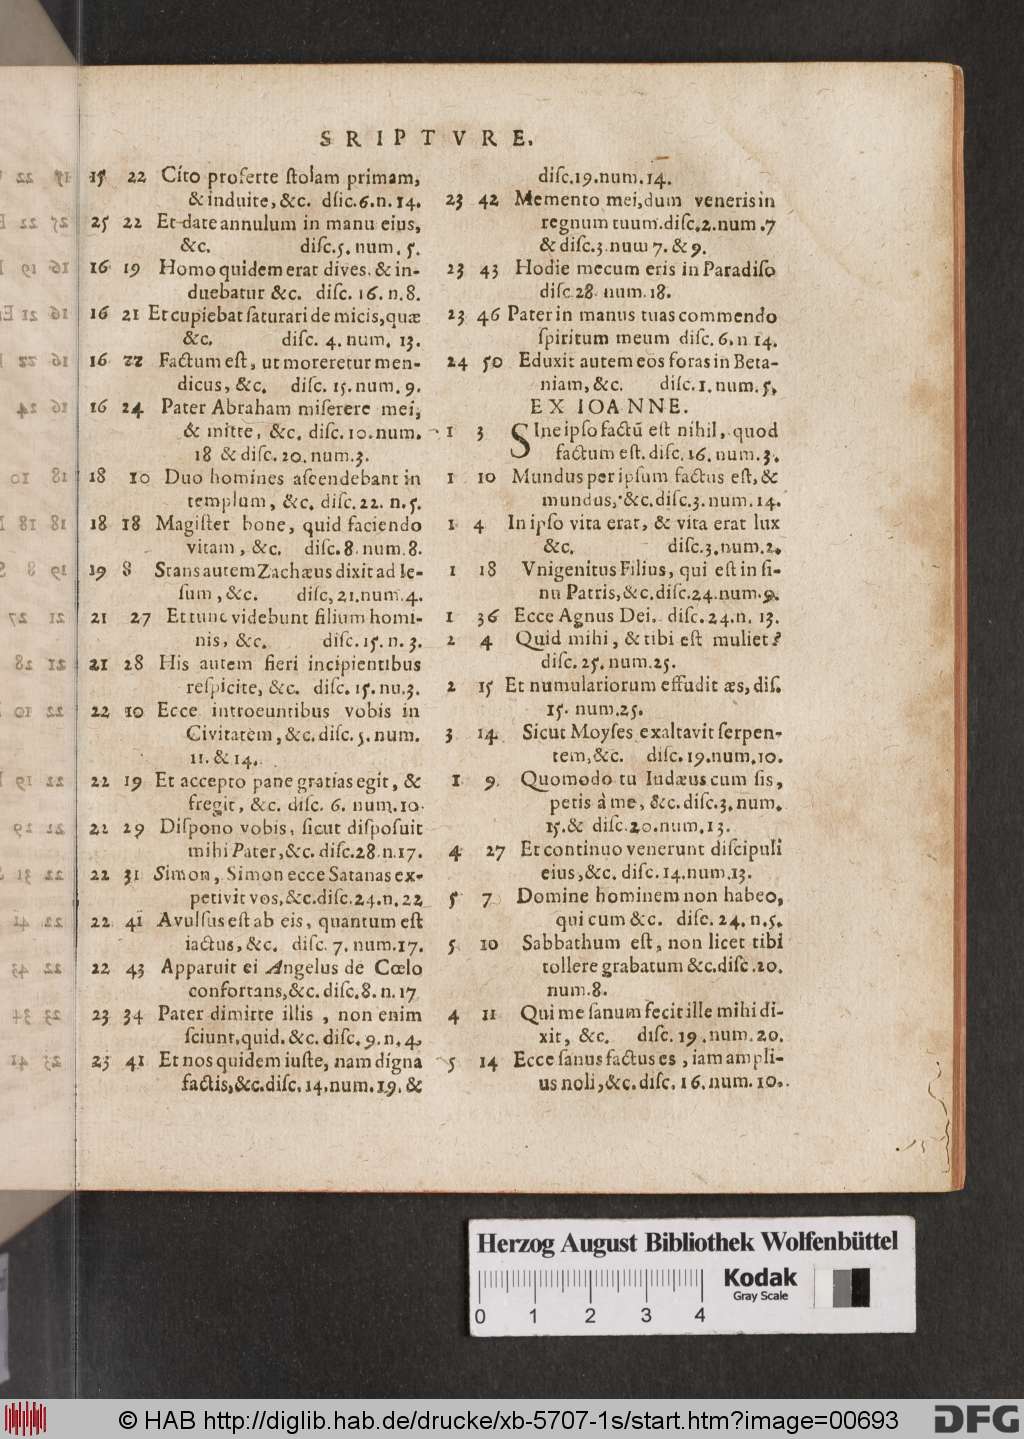 SRIPTVRE.
15 22 Cito proferte ſtolam primam,
& induite, &c. dſic.6.n.14.
25 22 Et date annulum in manu eius,
&c. diſc.5.num.5.
16 19 Homo quidem erat dives. & in-
duebatur &c. diſc. 16. n.8.
16 21 Et cupiebat ſaturari de micis, quæ
&c. diſc. 4. num. 13.
16 22 Factum eſt, ut moreretur men-
dicus, &c. diſc. 15. num. 9.
16 24 Pater Abraham miſerere mei,
& mitte, &c. diſc. 10. num.
18 & diſc. 20. num.3.
18 10 Duo homines aſcendebant in
templum, &c. diſc. 22. n.5.
18 18 Magiſter bone, quid faciendo
vitam, &c. diſc. 8. num.8.
19 8 Stans autem Zachæus dixit ad Ie-
ſum, &c. diſc, 21.num.4.
21 27 Et tunc videbunt filium homi-
nis, &c. diſc. 15. n. 3.
21 28 His autem fieri incipientibus
reſpicite, &c. diſc. 15. nu.3.
22 10 Ecce introeuntibus vobis in
Civitatem, &c. diſc. 5. num.
11. & 14.
22 19 Et accepto pane gratias egit, &
fregit, &c. diſc. 6. num.10.
22 29 Diſpono vobis, ſicut diſpoſuit
mihi Pater, &c. diſc.28.n.17.
22 31 Simon, Simon ecce Satanas ex-
petivit vos, &c. diſc. 24. n. 22
22 41 Avulſus eſt ab eis, quantum eſt
iactus, &c. diſc. 7. num.17.
22 43 Apparuit ei Angelus de Cœlo
confortans, &c. diſc. 8. n. 17
23 34 Pater dimitte illis, non enim
ſciunt, quid. &c. diſc. 9. n. 4,
23 41 Et nos quidem iuſte, nam digna
factis, &c. diſc. 14. num. 19. &
diſc.19.num.14.
23 42 Memento mei, dum veneris in
regnum tuum. diſc. 2. num .7
& diſc.3.num 7. & 9.
23 43 Hodie mecum eris in Paradiſo
diſc 28. num. 18.
23 46 Pater in manus tuas commendo
ſpiritum meum diſc. 6. n 14.
24 50 Eduxit autem eos foras in Beta-
niam, &c. diſc. 1. num. 5.
EX IOANNE.
1 3 SIne ipſo factũ eſt nihil, quod
factum eſt. diſc. 16. num. 3.
1 10 Mundus per ipſum factus eſt, &
mundus, &c. diſc. 3. num. 14.
1 4 In ipſo vita erat, & vita erat lux
&c. diſc. 3. num. 2.
1 18 Vnigenitus Filius, qui eſt in ſi-
nu Patris, &c. diſc. 24. num. 9.
1 36 Ecce Agnus Dei. diſc. 24. n. 13.
2 4 Quid mihi, & tibi eſt muliet?
diſc. 25. num.25.
2 15 Et numulariorum effudit æs, diſ.
15. num.25.
3 14 Sicut Moyſes exaltavit ſerpen-
tem, &c. diſc. 19. num. 10.
1. 9. Quomodo tu Iudæus cum ſis,
petis à me, &c. diſc. 3. num.
15. & diſc. 20. num. 13.
4 27 Et continuo venerunt diſcipuli
eius, &c. diſc. 14. num. 13.
5 7 Domine hominem non habeo,
qui cum &c. diſc. 24. n. 5.
5 10 Sabbathum eſt, non licet tibi
tollere grabatum &c. diſc .20.
num.8.
4 11 Qui me ſanum fecit ille mihi di-
xit, &c. diſc. 19. num. 20.
5 14 Ecce ſanus factus es, iam ampli-
us noli, &c. diſc. 16. num. 10.
Herzog August Bibliothek Wolfenbüttel
Kodak
Gray Scale
0 1 2 3 4
© HAB http://diglib.hab.de/drucke/xb-5707-1s/start.htm?image=00693
DFG